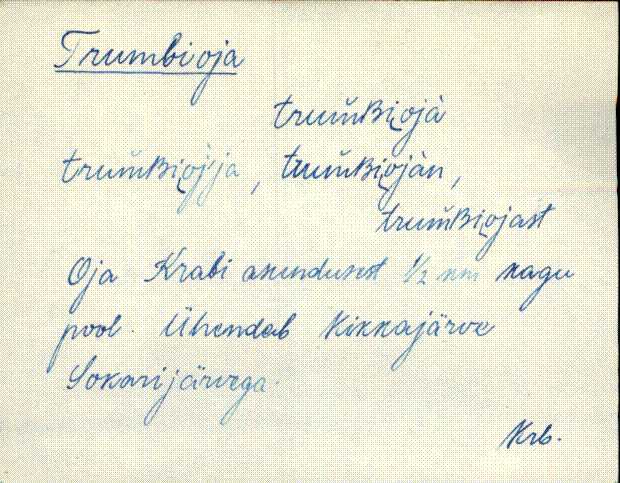 Trumbioja
trum̆ʙi̮ojà
trum̆ʙi̮oj̀ja, trum̆ʙi̮ojàn,
trum̆ʙi̮ojast
Oja Krabi asundusest ½ km kagu
pool. Ühendab Kikkajärve
Sokarijärvega.
Krb.